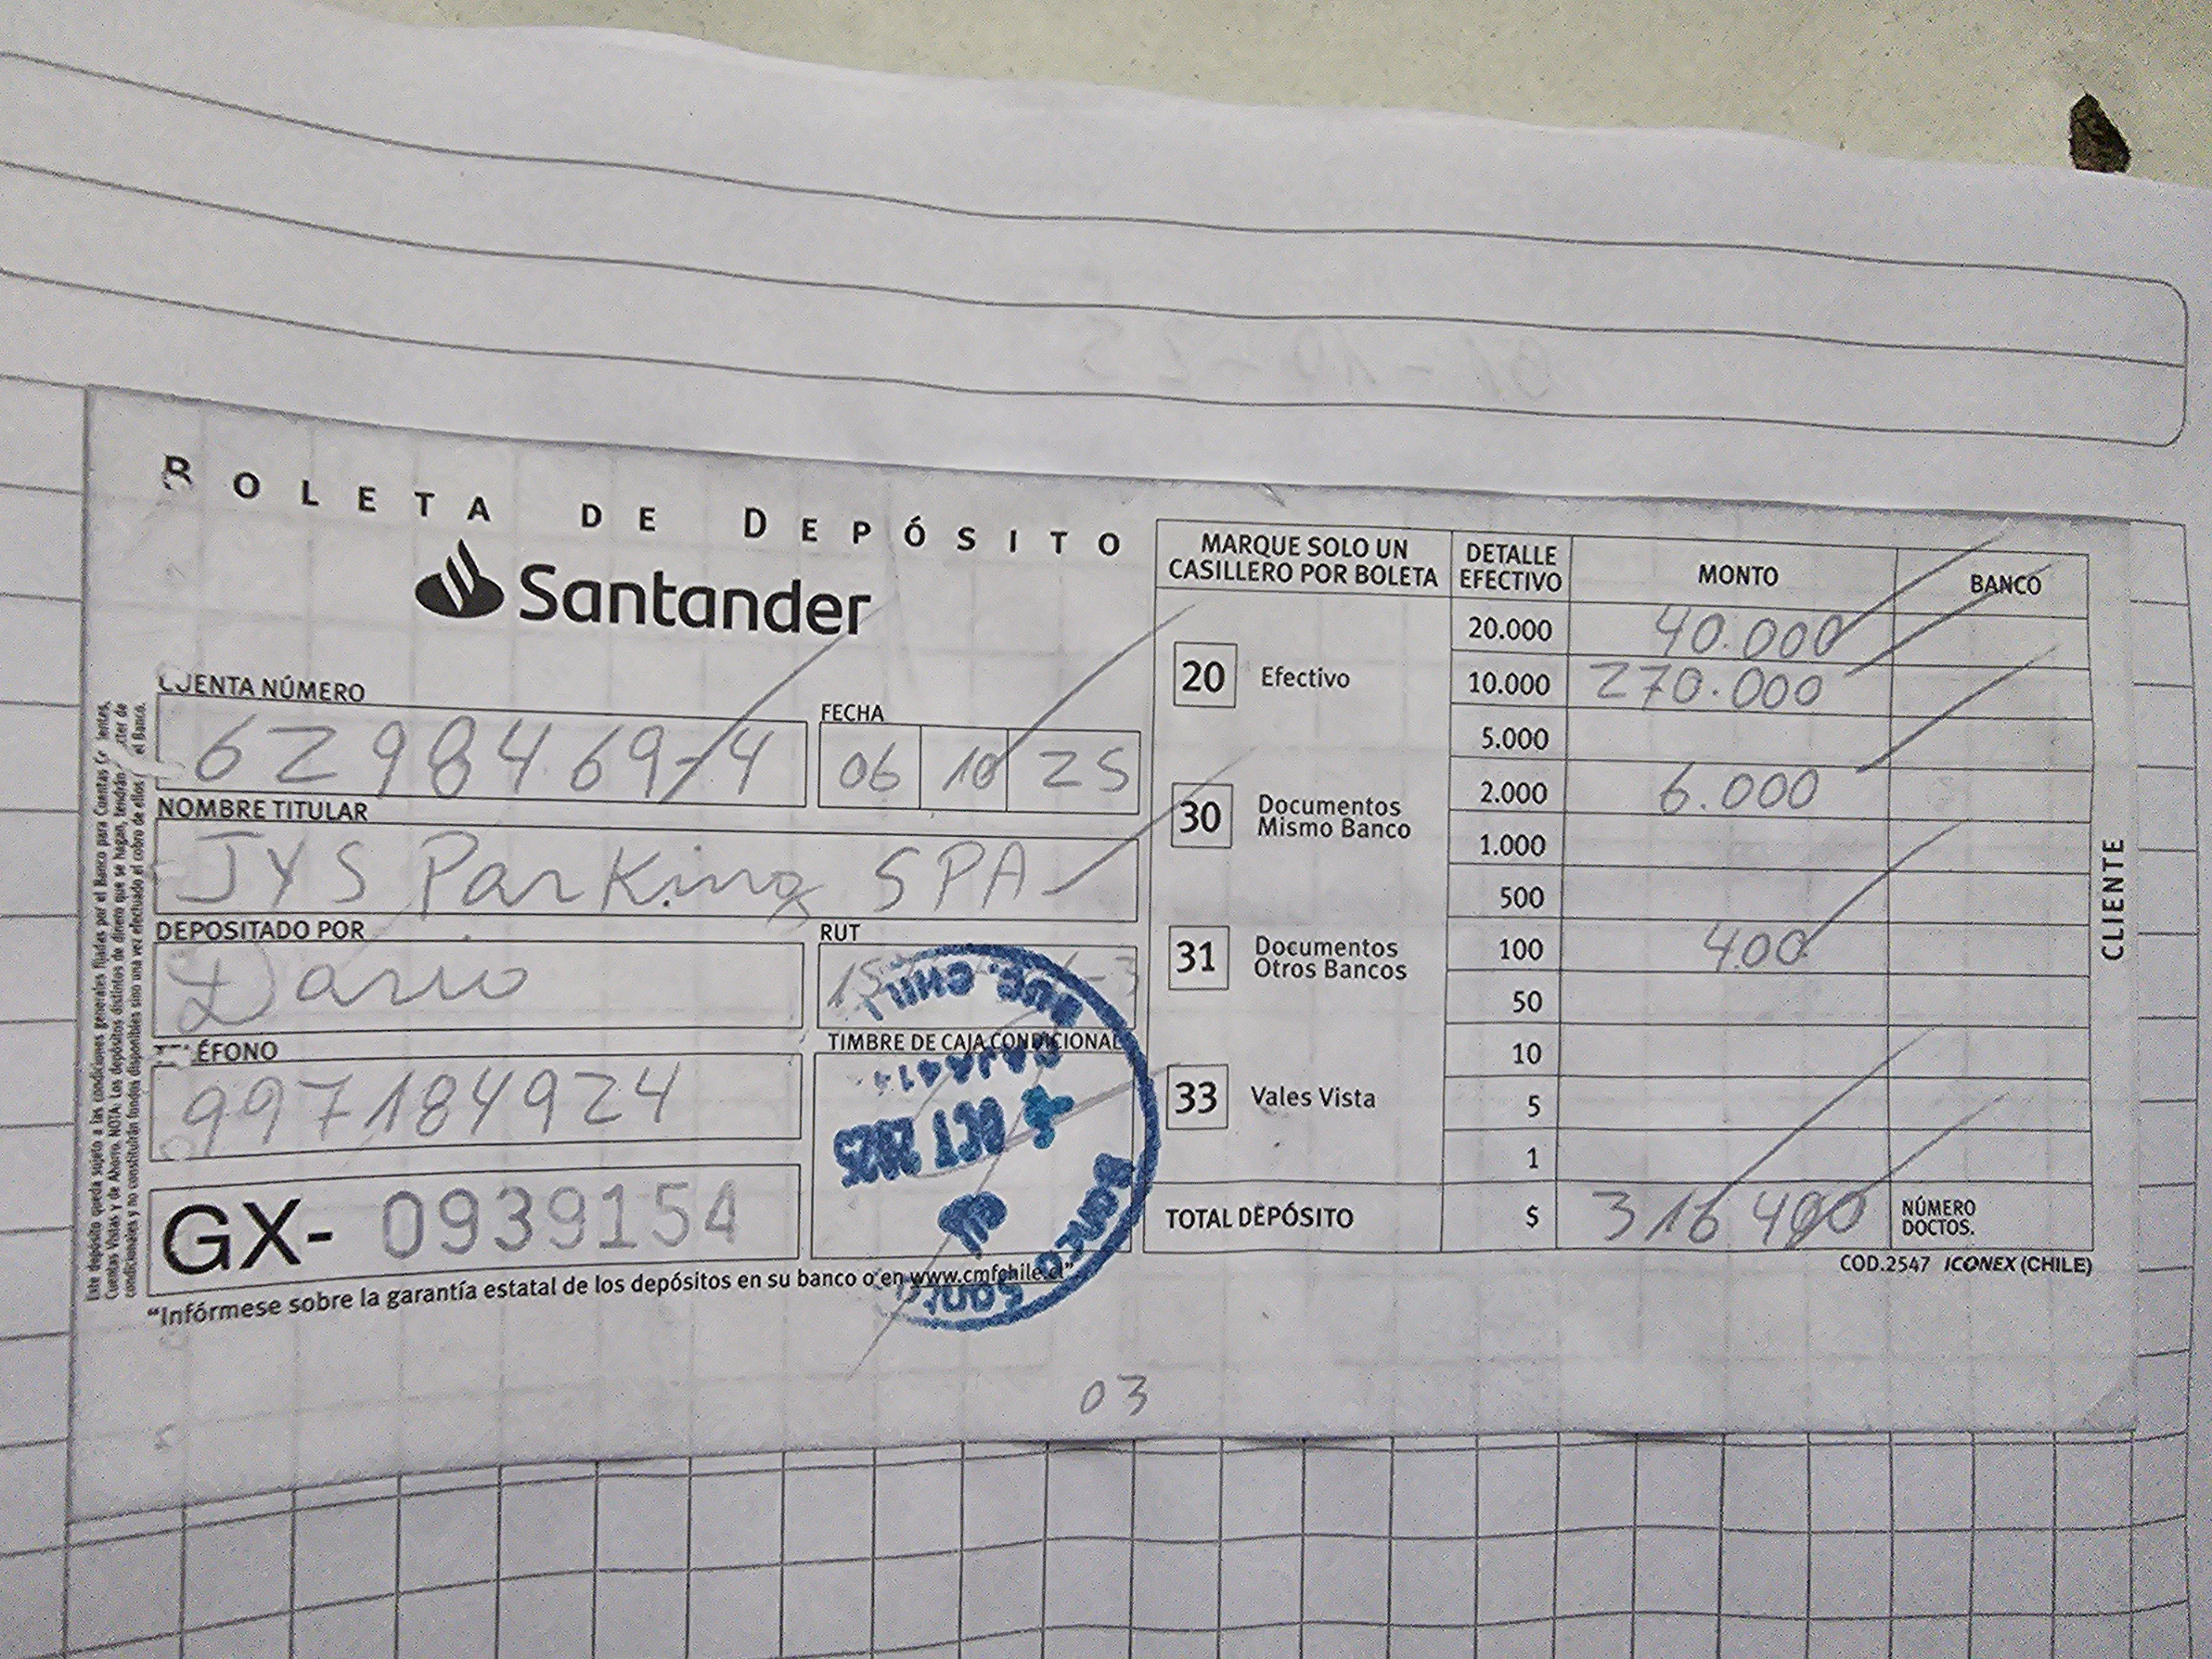 BOLETA DE DEPÓSITO
Santander
CUENTA NÚMERO
6298469-4
FECHA
06 10 25
NOMBRE TITULAR
JYS Parking SPA
DEPOSITADO POR
Dario
RUT
TELÉFONO
997184924
TIMBRE DE CAJA CONDICIONAL
GX- 0939154
"Infórmese sobre la garantía estatal de los depósitos en su banco o en www.cmfchile.cl"
MARQUE SOLO UN CASILLERO POR BOLETA
20 Efectivo
30 Documentos Mismo Banco
31 Documentos Otros Bancos
33 Vales Vista
DETALLE EFECTIVO MONTO BANCO
20.000 40.000
10.000 270.000
5.000
2.000 6.000
1.000
500
100 400
50
10
5
1
TOTAL DEPÓSITO $ 316400 NÚMERO DOCTOS.
COD.2547 ICONEX (CHILE)
CLIENTE
OCT 2025
03